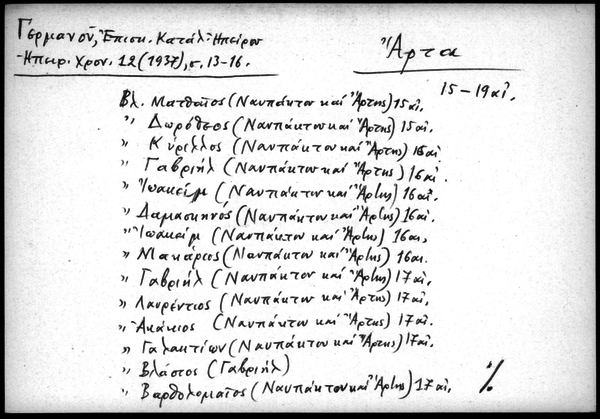 Γερμανοῦ, Ἐπισκ. Κατάλ. Ἠπείρου
Ἠπειρ. Χρον. 12 (1937), σ. 13-16.
Ἄρτα
15-19 αἰ.
Βλ. Ματθαῖος (Ναυπάκτου καὶ Ἄρτης) 15 αἰ.
" Δωρόθεος (Ναυπάκτου καὶ Ἄρτης) 15 αἰ.
" Κύριλλος (Ναυπάκτου καὶ Ἄρτης) 16 αἰ
" Γαβριήλ (Ναυπάκτου καὶ Ἄρτης) 16 αἰ.
" Ἰωακείμ (Ναυπάκτου καὶ Ἄρτης) 16 αἰ.
" Δαμασκηνός (Ναυπάκτου καὶ Ἄρτης) 16 αἰ.
" Ἰωακείμ (Ναυπάκτου καὶ Ἄρτης) 16 αἰ.
" Μακάριος (Ναυπάκτου καὶ Ἄρτης) 16 αἰ.
" Γαβριήλ (Ναυπάκτου καὶ Ἄρτης) 17 αἰ.
" Λαυρέντιος (Ναυπάκτου καὶ Ἄρτης) 17 αἰ.
" Ἀκάκιος (Ναυπάκτου καὶ Ἄρτης) 17 αἰ.
" Γαλακτίων (Ναυπάκτου καὶ Ἄρτης) 17 αἰ.
" Βλάσιος (Γαβριήλ)
" Βαρθολομαῖος (Ναυπάκτου καὶ Ἄρτης) 17 αἰ. ./.